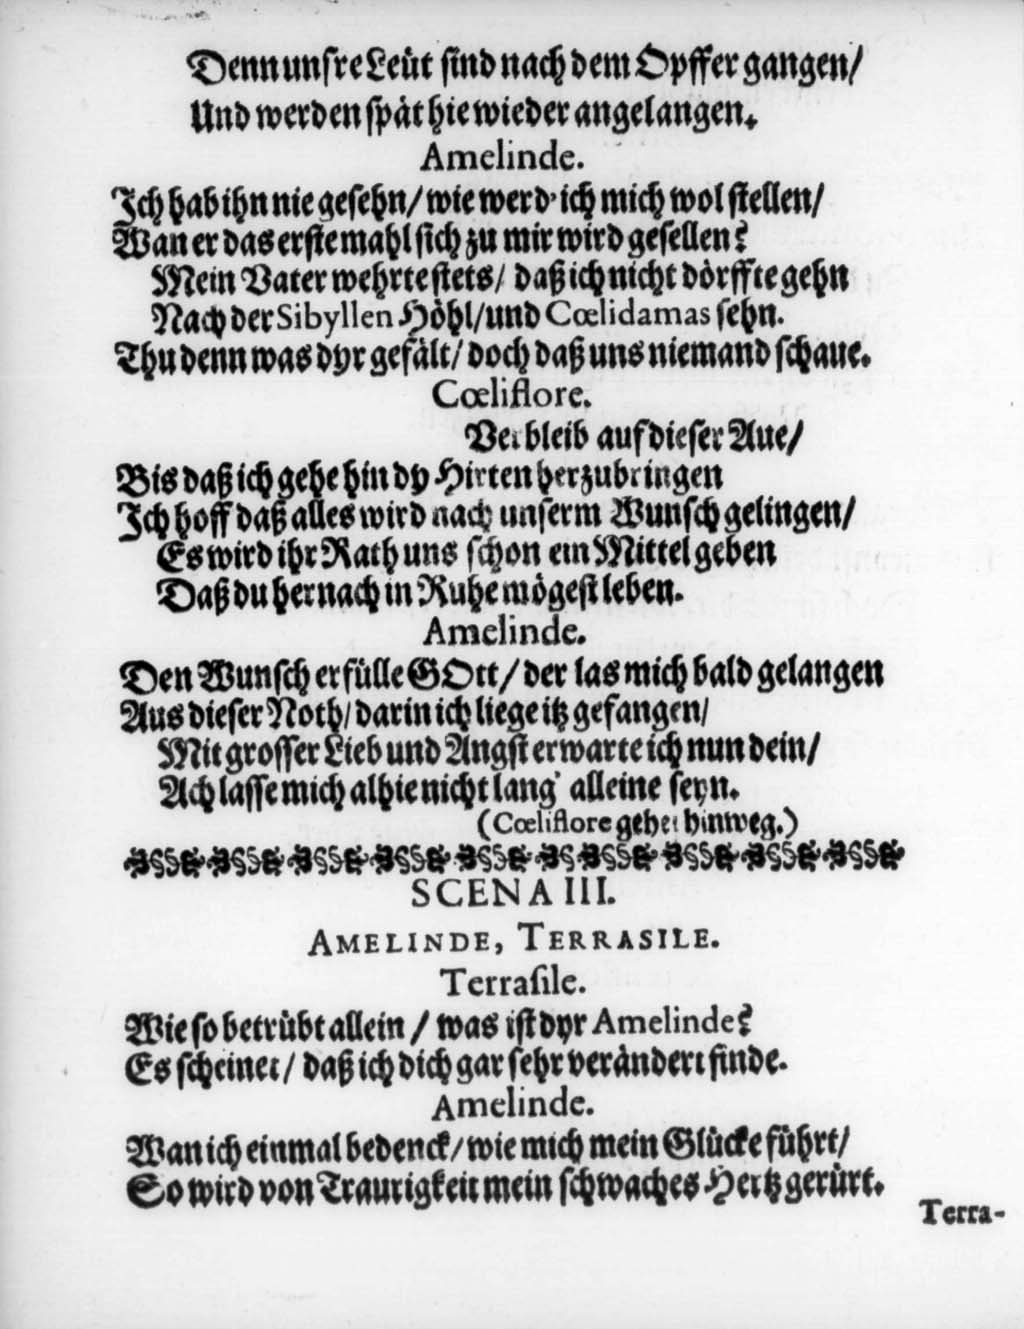 Denn unſre Leüt ſind nach dem Opffer gangen/
Und werden ſpät hie wieder angelangen.
Amelinde.
Ich hab ihn nie geſehn/ wie werd' ich mich wol ſtellen/
Wan er das erſte mahl ſich zu mir wird geſellen?
Mein Vater wehrte ſtets/ daß ich nicht dörffte gehn
Nach der Sibyllen Höhl/ und Cœlidamas ſehn.
Thu denn was dyr gefält/ doch daß uns niemand ſchaue.
Cœliflore.
Verbleib auf dieſer Aue/
Bis daß ich gehe hin dy Hirten herzubringen
Ich hoff daß alles wird nach unſerm Wunſch gelingen/
Es wird ihr Rath uns ſchon ein Mittel geben
Daß du hernach in Ruhe mögeſt leben.
Amelinde.
Den Wunſch erfülle GOtt/ der las mich bald gelangen
Aus dieſer Noth/ darin ich liege itz gefangen/
Mit groſſer Lieb und Angſt erwarte ich nun dein/
Ach laſſe mich alhie nicht lang' alleine ſeyn.
(Cœliflore gehet hinweg.)
SCENA III.
AMELINDE, TERRASILE.
Terraſile.
Wie ſo betrübt allein / was iſt dyr Amelinde?
Es ſcheinet/ daß ich dich gar ſehr verändert finde.
Amelinde.
Wan ich einmal bedenck/ wie mich mein Glücke führt/
So wird von Traurigkeit mein ſchwaches Hertz gerürt.
Terra-